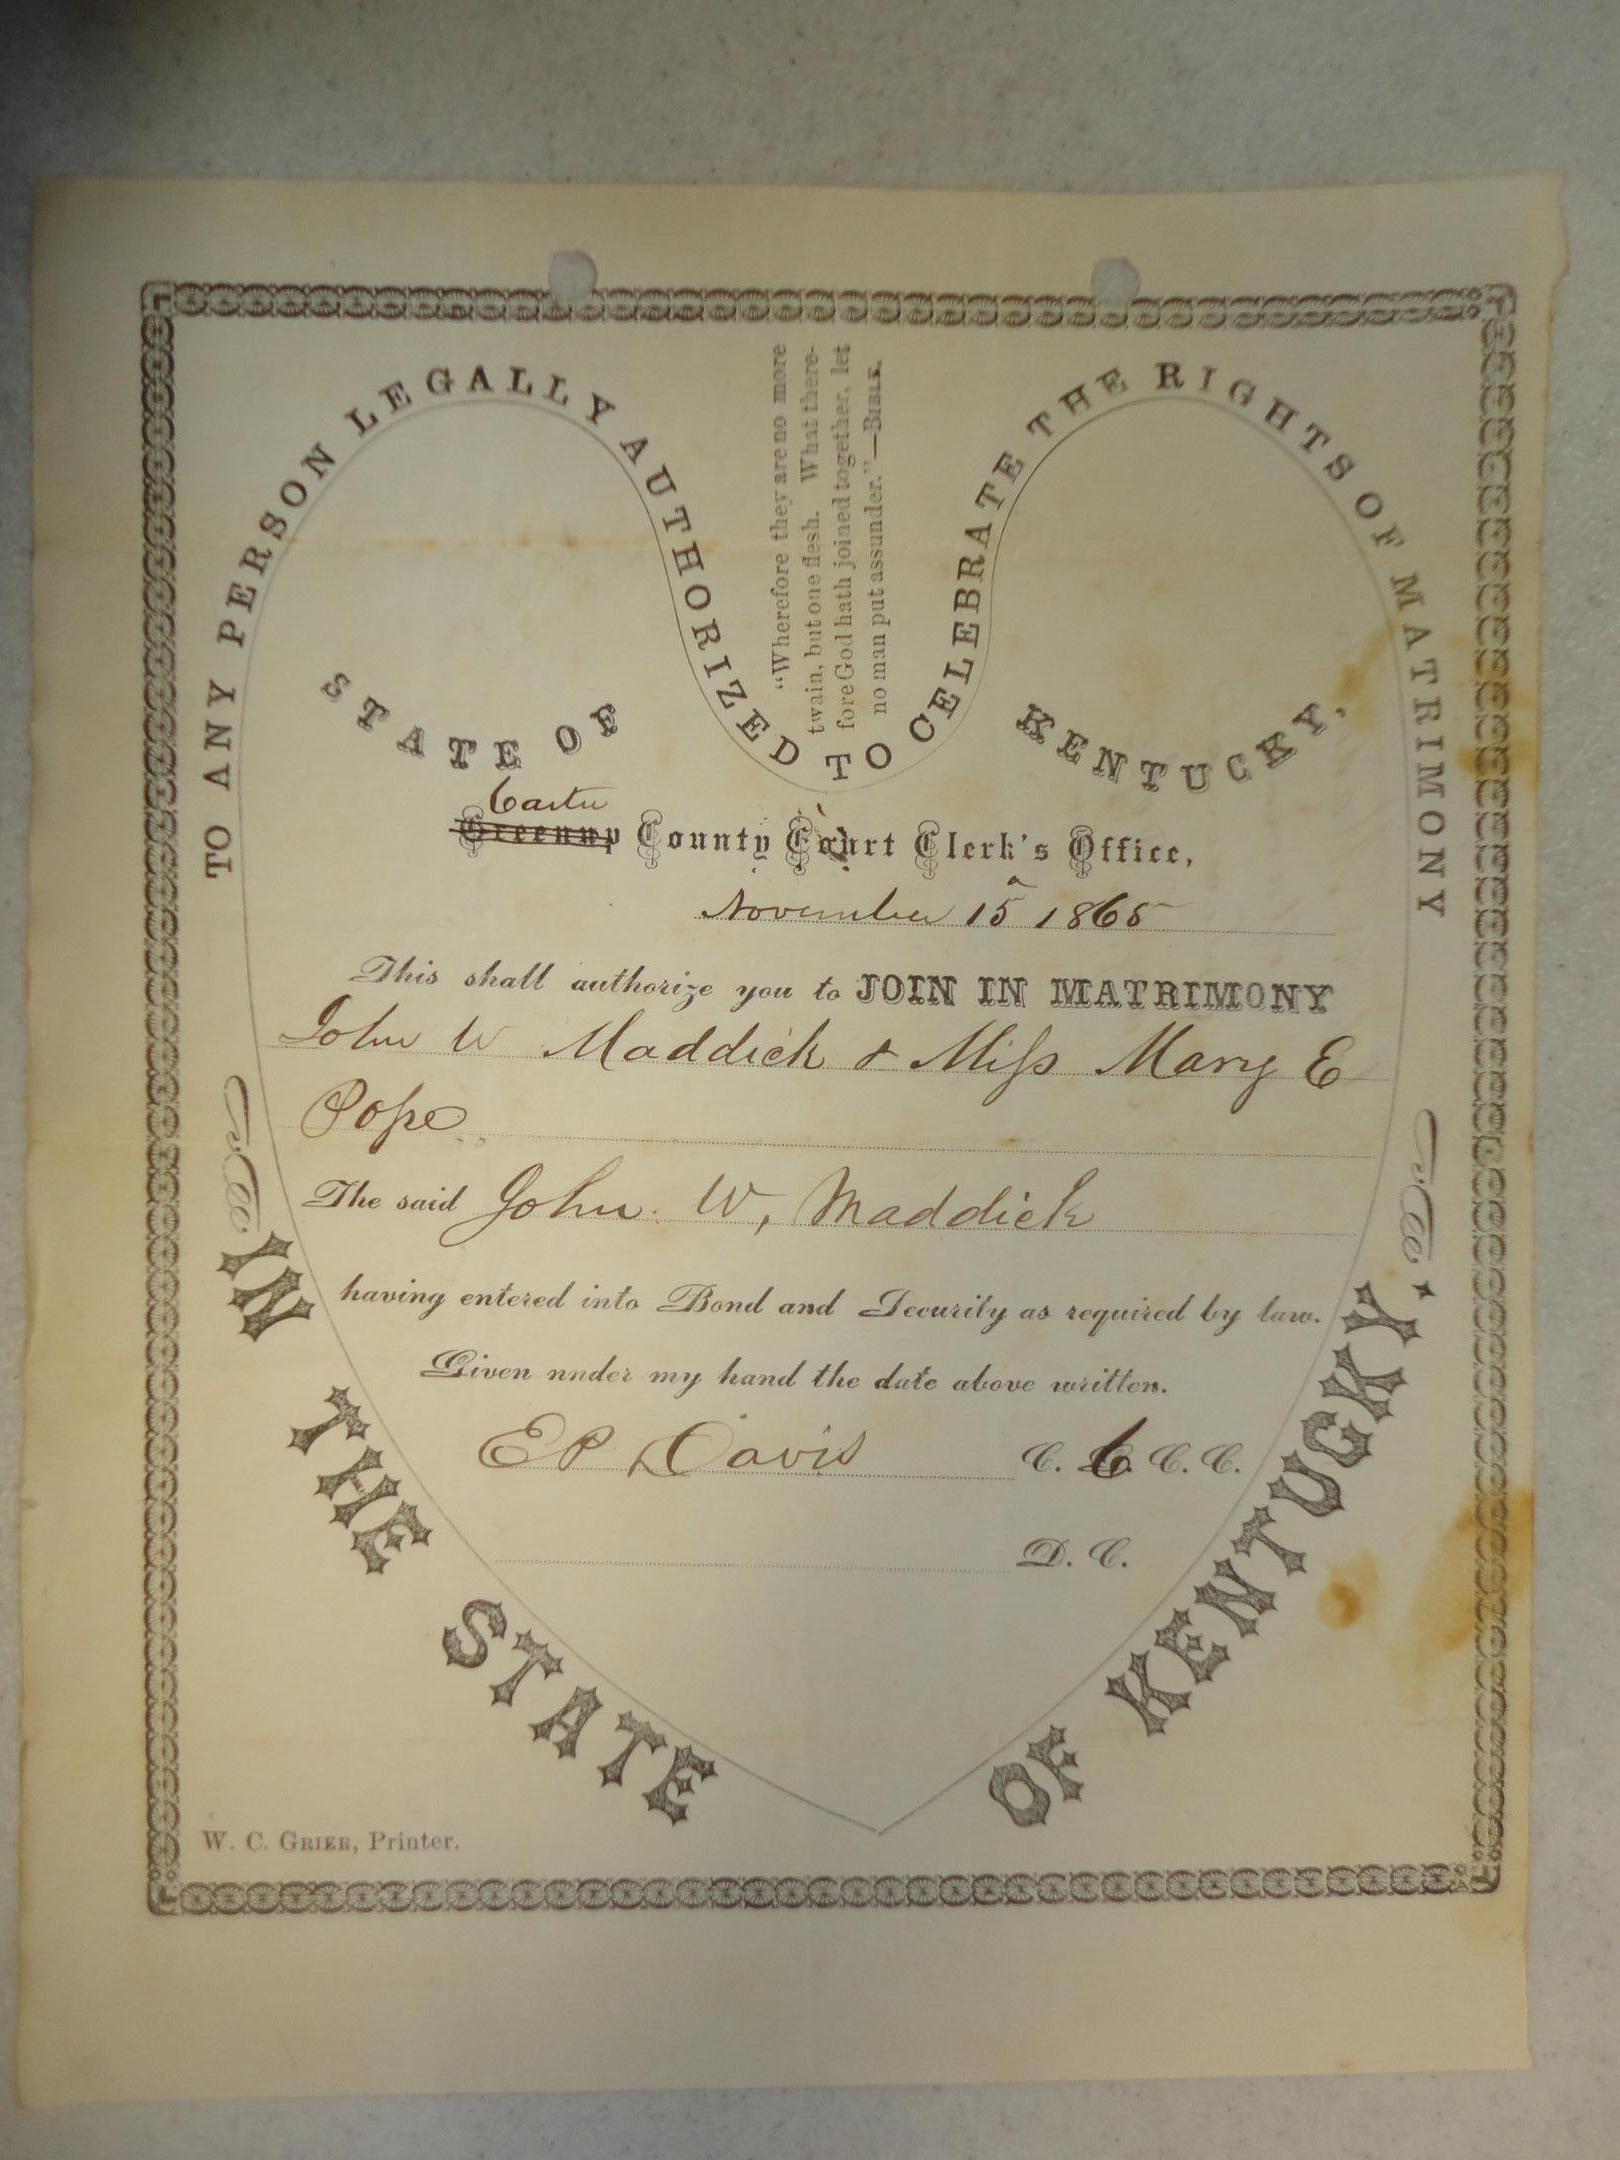 TO ANY PERSON LEGALLY AUTHORIZED TO CELEBRATE THE RIGHTS OF MATRIMONY
"Wherefore they are no more
twain, but one flesh. What there-
fore God hath joined together, let
no man put assunder."—BIBLE.
STATE OF KENTUCKY,
Carter
Greenup County Court Clerk's Office,
November 15 1865
This shall authorize you to JOIN IN MATRIMONY
John W Maddick & Miss Mary E
Pope
The said John W, Maddick
having entered into Bond and Security as required by law.
Given nnder my hand the date above written.
EP Davis C. C. C. C.
D. C.
IN THE STATE OF KENTUCKY.
W. C. GRIER, Printer.